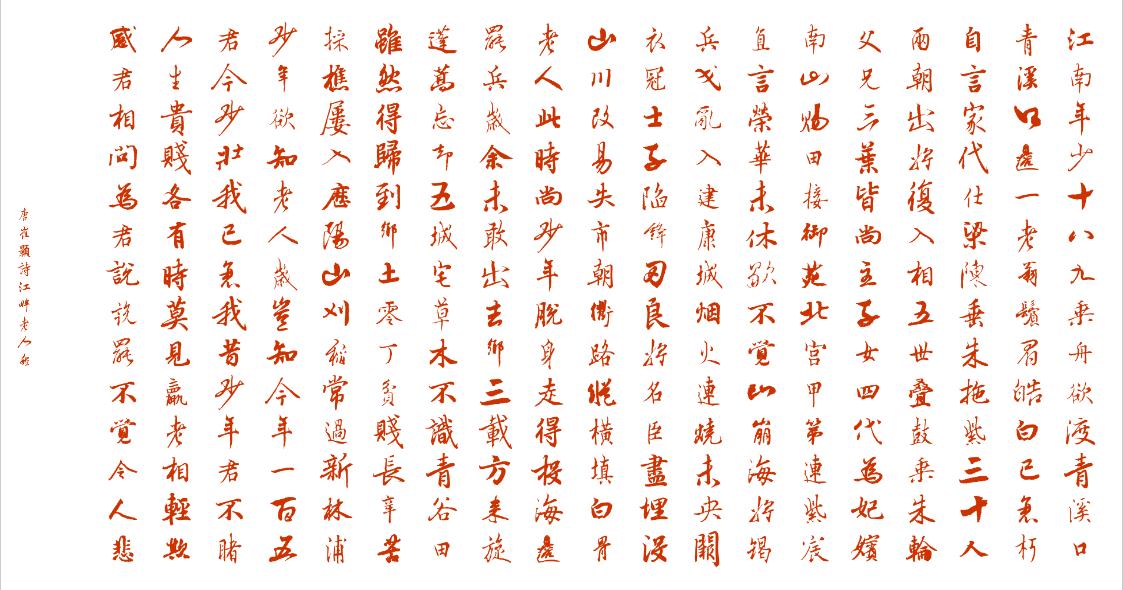 江南年少十八九乘舟欲渡青溪口
青溪口邊一老翁鬢眉皓白已衰朽
自言家代仕梁陳垂朱拖紫三十人
兩朝出將復入相五世叠鼓乘朱輪
父兄三葉皆尚主子女四代為妃嬪
南山賜田接御苑北宮甲第連紫宸
直言榮華未休歇不覺山崩海將竭
兵戈亂入建康城烟火連燒未央闕
衣冠士子陷鋒刃良將名臣盡埋沒
山川改易失市朝衢路縱橫填白骨
老人此時尚少年脫身走得投海邊
罷兵歲余未敢出去鄉三載方來旋
蓬蒿忘却五城宅草木不識青谷田
雖然得歸到鄉土零丁貧賤長辛苦
採樵屢入歷陽山刈稻常過新林浦
少年欲知老人歲豈知今年一百五
君今少壯我已衰我昔少年君不睹
人生貴賤各有時莫見羸老相輕欺
感君相問為君說說罷不覺令人悲
唐崔顥詩江畔老人愁